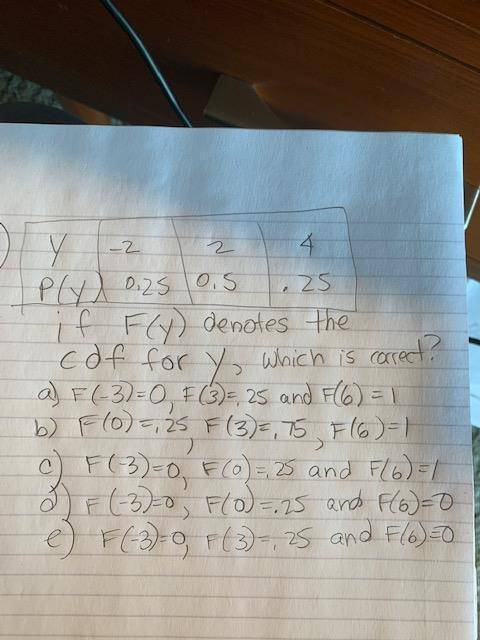 Y -2 2 4
P(y) 0.25 0.5 .25
if F(y) denotes the
cdf for y, which is correct?
a) F(-3)=0, F(3)=.25 and F(6)=1
b) F(0)=.25, F(3)=.75, F(6)=1
c) F(-3)=0, F(0)=.25 and F(6)=1
d) F(-3)=0, F(0)=.25 and F(6)=0
e) F(-3)=0, F(3)=.25 and F(6)=0